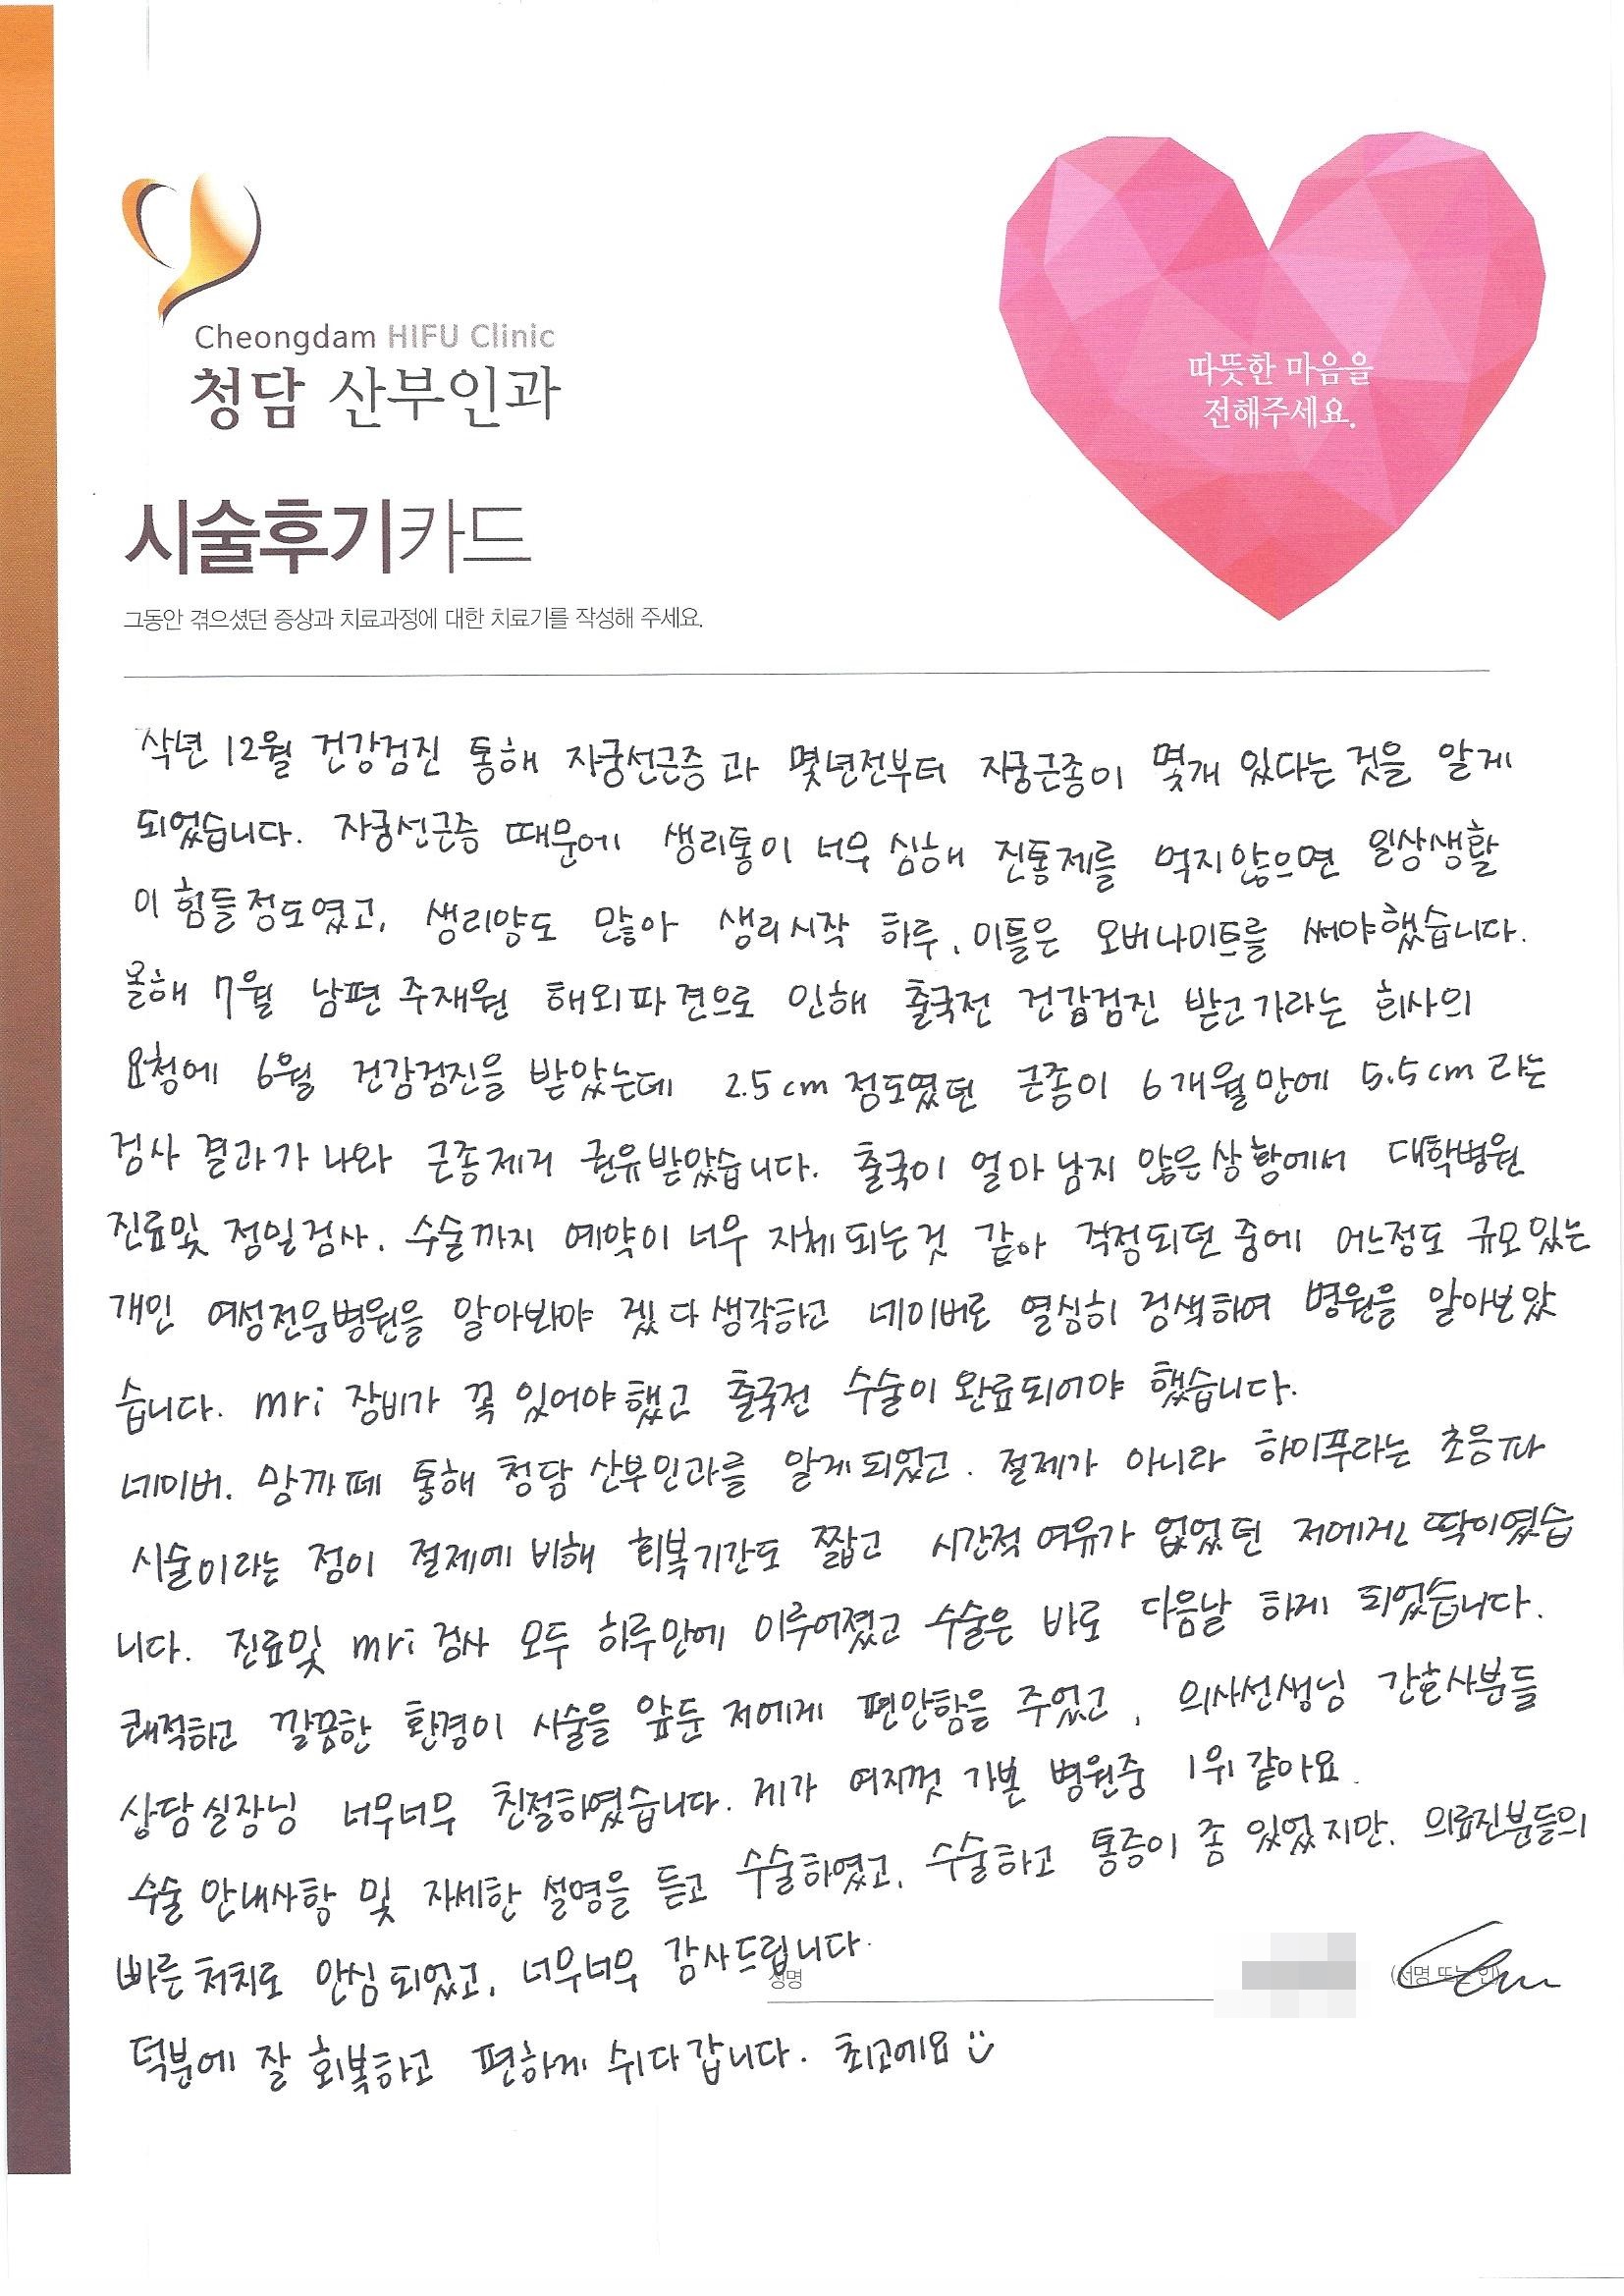 Cheongdam HIFU Clinic
청담 산부인과
따뜻한 마음을
전해주세요.
시술후기카드
그동안 겪으셨던 증상과 치료과정에 대한 치료기를 작성해 주세요.
작년 12월 건강검진 통해 자궁선근증과 몇년전부터 자궁근종이 몇개 있다는 것을 알게
되었습니다. 자궁선근증 때문에 생리통이 너무 심해 진통제를 먹지않으면 일상생활
이 힘들정도였고, 생리양도 많아 생리시작 하루, 이틀은 오버나이트를 써야했습니다.
올해 7월 남편 주재원 해외파견으로 인해 출국전 건강검진 받고가라는 회사의
요청에 6월 건강검진을 받았는데 2.5cm 정도였던 근종이 6개월만에 5.5cm 라는
검사 결과가 나와 근종제거 권유받았습니다. 출국이 얼마 남지 않은상황에서 대학병원
진료및 정밀검사, 수술까지 예약이 너무 지체되는것 같아 걱정되던 중에 어느정도 규모있는
개인 여성전문병원을 알아봐야 겠다 생각하고 네이버로 열심히 검색하여 병원을 알아보았
습니다. mri 장비가 꼭 있어야했고 출국전 수술이 완료되어야 했습니다.
네이버, 맘까페 통해 청담 산부인과를 알게되었고, 절제가 아니라 하이푸라는 초음파
시술이라는 점이 절제에 비해 회복기간도 짧고 시간적 여유가 없었던 저에겐 딱이였습
니다. 진료및 mri 검사 모두 하루만에 이루어졌고 수술은 바로 다음날 하게 되었습니다.
쾌적하고 깔끔한 환경이 시술을 앞둔 저에게 편안함을 주었고, 의사선생님 간호사분들
상담실장님 너무너무 친절하였습니다. 제가 여지껏 가본 병원중 1위 같아요.
수술 안내사항 및 자세한 설명을 듣고 수술하였고, 수술하고 통증이 좀 있었지만, 의료진분들의
빠른 처치로 안심되었고, 너무너무 감사드립니다.
성명 (서명 또는 인)
덕분에 잘 회복하고 편하게 쉬다갑니다. 최고에요